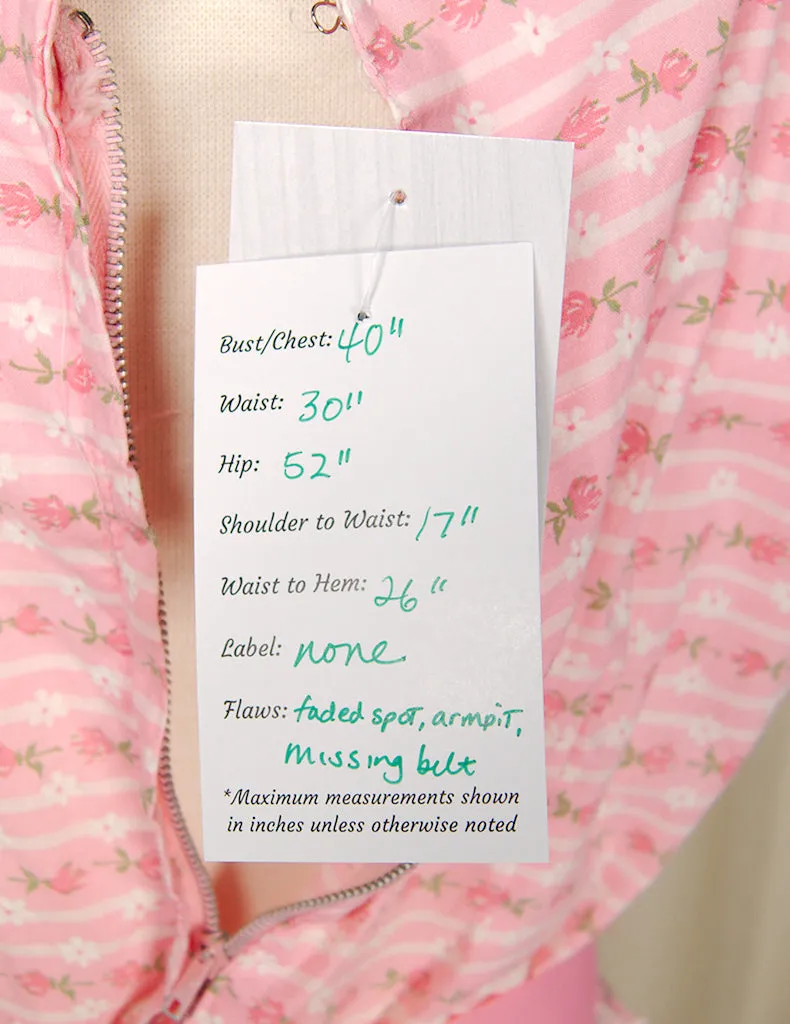 Bust/Chest: 40"
Waist: 30"
Hip: 52"
Shoulder to Waist: 17"
Waist to Hem: 26"
Label: none
Flaws: faded spot, armpit,
missing belt
*Maximum measurements shown
in inches unless otherwise noted